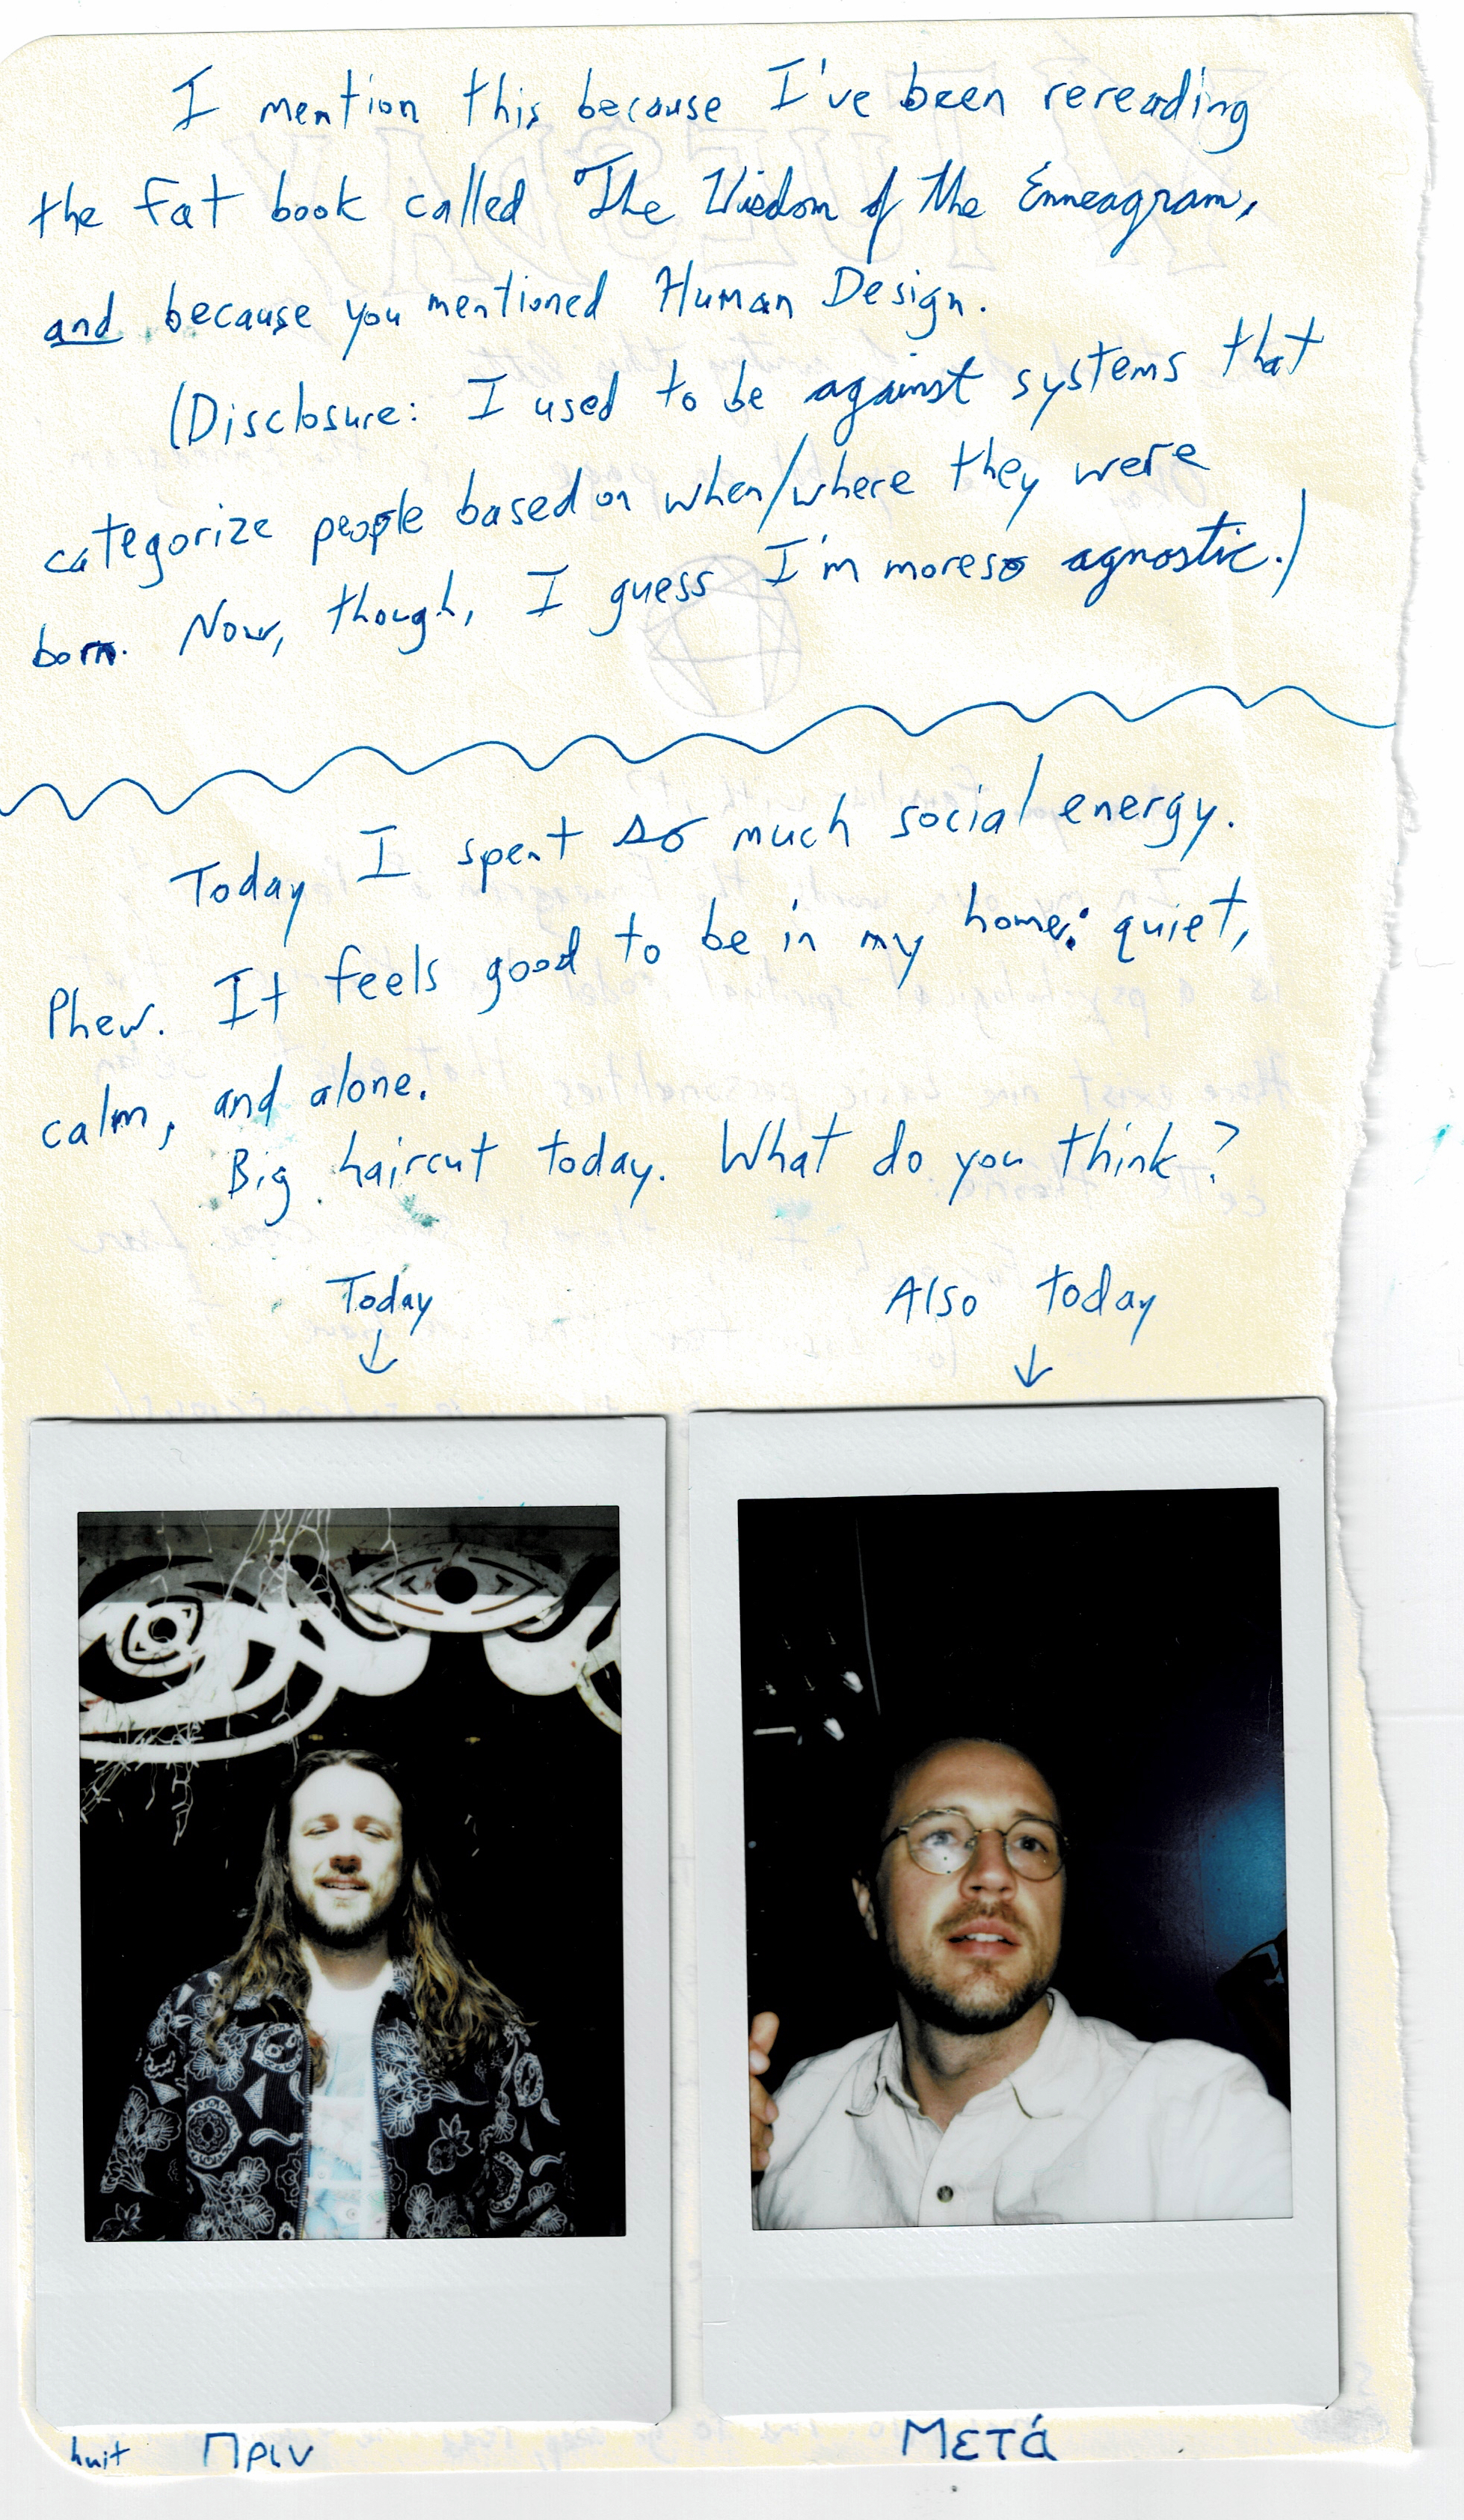 I mention this because I've been rereading
the fat book called The Wisdom of the Enneagram,
and because you mentioned Human Design.
(Disclosure: I used to be against systems that
categorize people based on when/where they were
born. Now, though, I guess I'm moreso agnostic.)
Today I spent so much social energy.
Phew. It feels good to be in my home: quiet,
calm, and alone.
Big haircut today. What do you think?
Today
Also today
huit
Πριν
Μετά